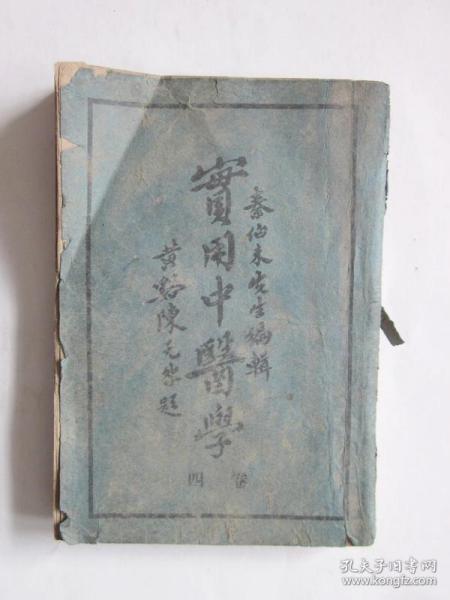 秦伯未先生編輯
實用中醫學
黄谿陳无咎題
卷四
孔夫子旧书网
www.kongfz.com